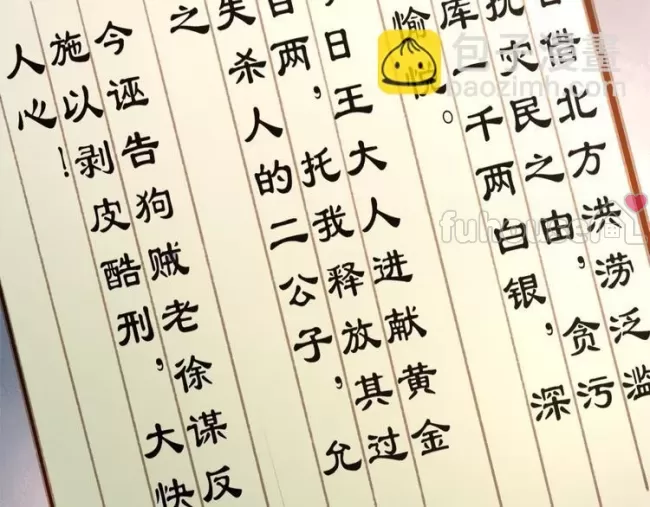 借北方洪涝泛滥
灾民之由，贪污
库一千两白银，深
愉。
日王大人进献黄金
两，托我释放其过
失杀人的二公子，允
之
今诬告狗贼老徐谋反
施以剥皮酷刑，大快
人心！
包子漫畫
baozimh.com